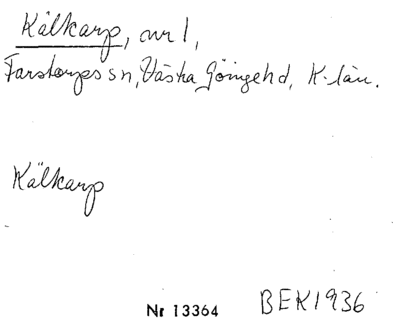 Kälkarp, nr 1,
Farstorps sn, Västra Göingehd, K-län.
Kälkarp
Nr 13364 BEK1936